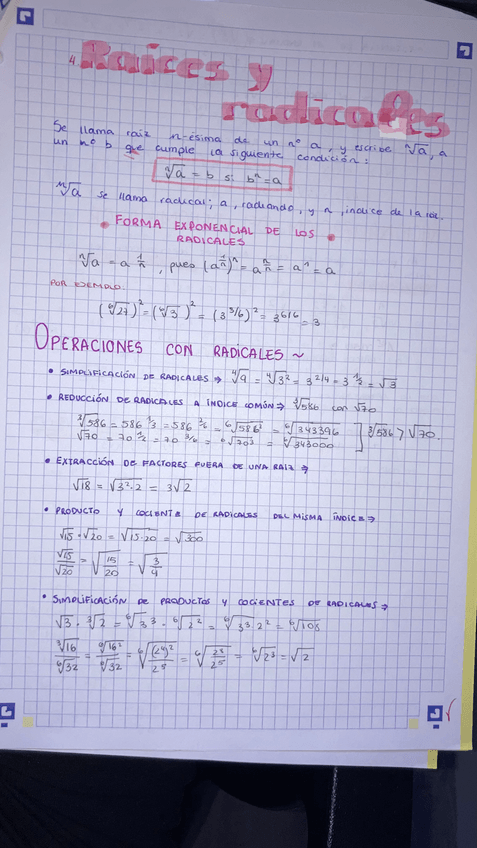 4. Raíces y
radicales
Se llama raiz n-esima de un nº a, y escribe ⁿ√a, a
un nº b que cumple la siguiente condición:
ⁿ√a = b si bⁿ = a
ⁿ√a se llama radical; a, radiando, y n, indice de la raiz.
• FORMA EXPONENCIAL DE LOS •
RADICALES
ⁿ√a = a^(1/n), pues (a^(1/n))ⁿ = a^(n/n) = a¹ = a
POR EJEMPLO:
(⁶√27)² = (⁶√3³)² = (3^(3/6))² = 3^(6/6) = 3
OPERACIONES CON RADICALES ~
• SIMPLIFICACIÓN DE RADICALES → ⁴√9 = ⁴√3² = 3^(2/4) = 3^(1/2) = √3
• REDUCCIÓN DE RADICALES A ÍNDICE COMÚN → ³√586 con √70
³√586 = 586^(1/3) = 586^(2/6) = ⁶√586² = ⁶√343396 ] ³√586 > √70.
√70 = 70^(1/2) = 70^(3/6) = ⁶√70³ = ⁶√343000
• EXTRACCIÓN DE FACTORES FUERA DE UNA RAIZ →
√18 = √3²·2 = 3√2
• PRODUCTO Y COCIENTE DE RADICALES DEL MISMA ÍNDICE →
√15·√20 = √15·20 = √300
√15/√20 = √(15/20) = √(3/4)
• SIMPLIFICACIÓN DE PRODUCTOS Y COCIENTES DE RADICALES →
√3 · ³√2 = ⁶√3³ · ⁶√2² = ⁶√3³·2² = ⁶√108
³√16/⁶√32 = ⁶√16²/⁶√32 = ⁶√((2⁴)²/2⁵) = ⁶√(2⁸/2⁵) = ⁶√2³ = √2